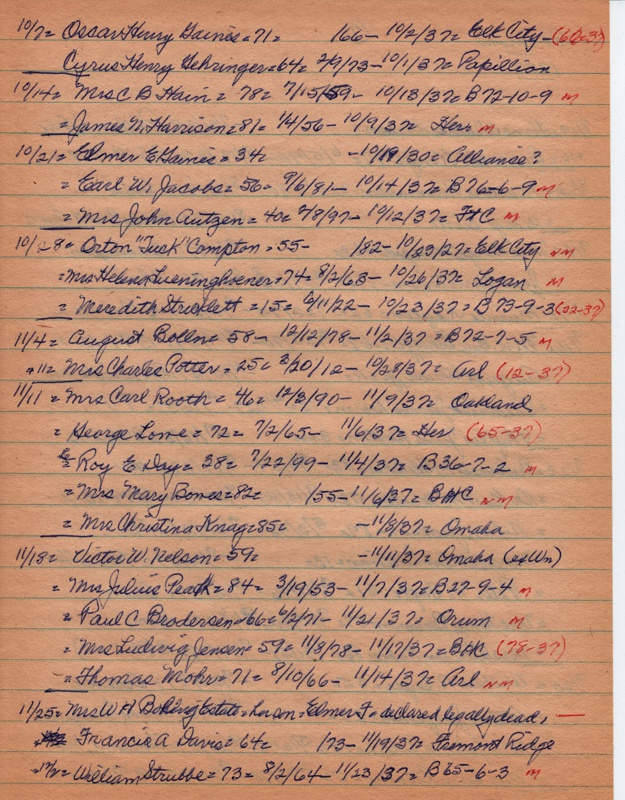 10/7= Osсar Henry Gaines=71= 166- 10/2/37= Elk City-(66-37)
Cyrus Henry Gehringer=64= 2/9/73- 10/1/37= Papillion
10/14= Mrs C B Hain = 78= 7/15/59- 10/13/37= B72-10-9 M
= James N. Harrison=81= 1/4/56- 10/9/37= Her M
10/21= Elmer E Gaines = 34= -10/19/30= Alliance?
= Earl W. Jacobs= 56= 9/6/81- 10/14/37= B76-6-9 M
= Mrs John Autzen= 40= 2/8/97- 10/12/37= Ft C M
10/28= Orton "Tuck" Compton= 55- /82- 10/23/27= Elk City NM
= Mrs Helena Lueninghoener=74= 8/2/63- 10/26/37= Logan M
= Meredith Stricklett =15= 6/11/22- 10/23/37= B73-9-3 (22-37)
11/4= August Bolln= 58- 12/12/78- 11/2/37= B72-7-5 M
= Mrs Charles Potter= 25= 3/20/12- 10/28/37= Arl (12-37)
11/11= Mrs Carl Rooth= 46= 12/3/90- 11/9/37= Oakland
= George Lowe= 72= 7/2/65- 11/6/37= Her (65-37)
= Roy E Day= 38= 7/22/99- 11/4/37= B36-7-2 M
= Mrs Mary Bowes=82= /55- 11/6/37= BHC NM
= Mrs Christina Knag=85= -11/8/37= Omaha
11/18= Victor W. Nelson= 59= -11/11/37= Omaha (exWn)
= Mrs Julius = 84= 3/19/53- 11/7/37= B27-9-4 M
= Paul C Brodersen=66= 6/2/71- 11/21/37= Orum M
= Mrs Ludwig Jensen= 59= 11/8/78- 11/17/37= BHC (78-37)
= Thomas Mohr= 71= 8/10/66- 11/14/37= Arl NM
11/25= Mrs W H Estate= her son= Elmer F= declared legally dead, —
Francis A Davis= 64= /73- 11/19/37= Fremont Ridge
12/2= William Strubbe= 73= 8/2/64- 11/23/37= B65-6-3 M